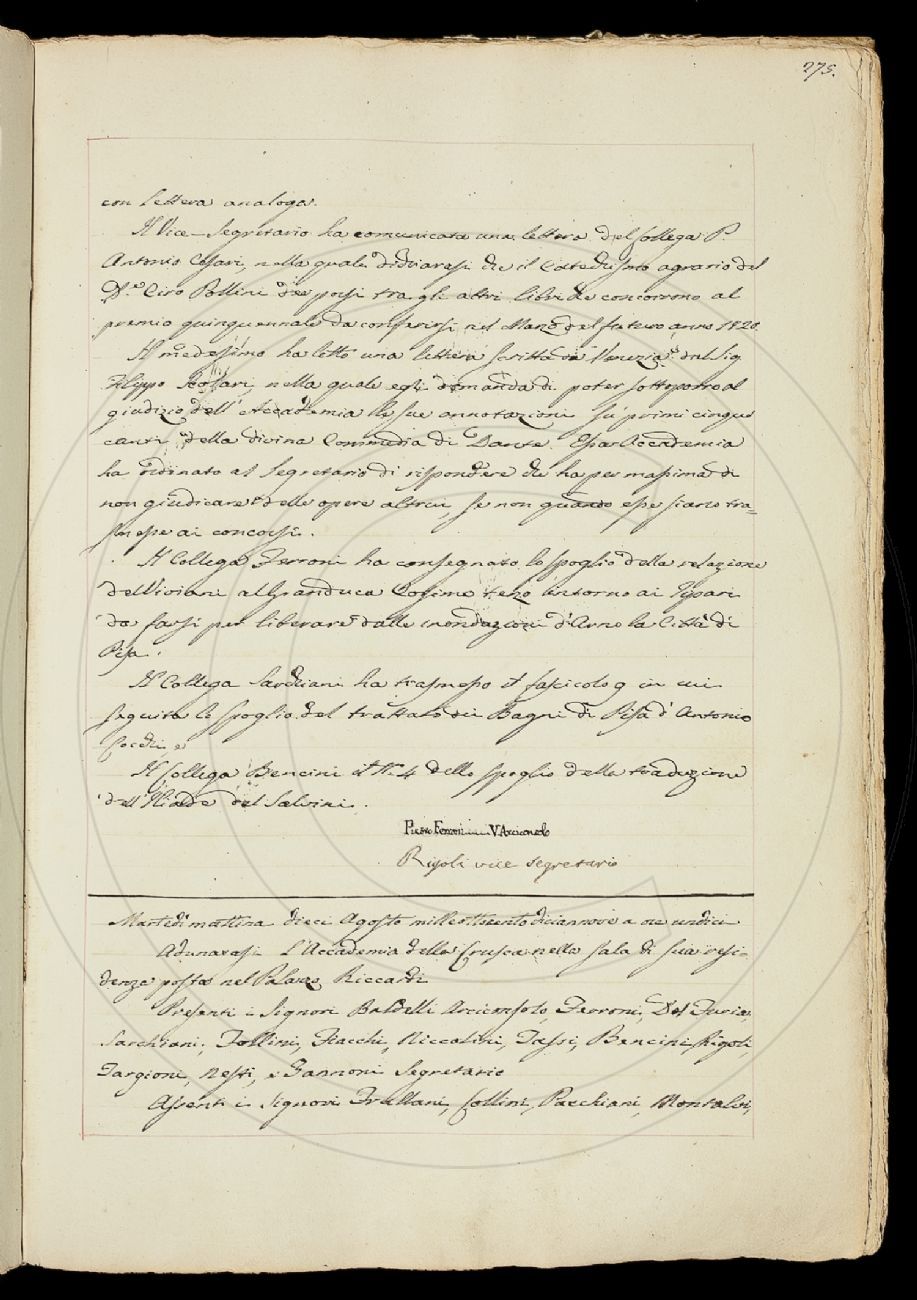 275.
con lettera analoga.
Il Vice-Segretario ha comunicata una lettera del Collega P.
Antonio Cesari, nella quale dichiarasi che il Catechismo agrario del
D.r Ciro Pollini dee porsi tra gli altri libri che concorrono al
premio quinquennale da conferirsi nel Marzo del futuro anno 1820.
Il medesimo ha letto una lettera scritta da Venezia dal Sig.
Filippo Scolari, nella quale egli domanda di poter sottoporre al
giudizio dell'Accademia le sue annotazioni su' primi cinque
canti della divina Commedia di Dante. Essa Accademia
ha ordinato al Segretario di rispondere che ha per massima di
non giudicare delle opere altrui, se non quando esse siano tra=
smesse ai concorsi.
Il Collega Ferroni ha consegnato lo spoglio della relazione
del Viviani al Granduca Cosimo terzo intorno ai ripari
da farsi per liberare dalle inondazioni d'Arno la Città di
Pisa.
Il Collega Sarchiani ha trasmesso il fascicolo 9 in cui
seguita lo spoglio del trattato dei Bagni di Pisa d'Antonio
Cocchi, e
Il Collega Bencini il N. 4 dello spoglio della traduzione
dell'Iliade del Salvini.
Pietro Ferroni V. Arciconsolo
Rigoli vice segretario
Martedì mattina dieci Agosto milleottocentodiciannove a ore undici
Adunavasi l'Accademia della Crusca nella sala di sua resi-
denza posta nel Palazzo Riccardi.
Presenti i Signori Baldelli Arciconsolo, Ferroni, Del Furia,
Sarchiani, Follini, Fiacchi, Niccolini, Tassi, Bencini, Rigoli,
Targioni, Nesti, e Zannoni Segretario
Assenti i Signori Frullani, Collini, Pacchiani, Montalvi,